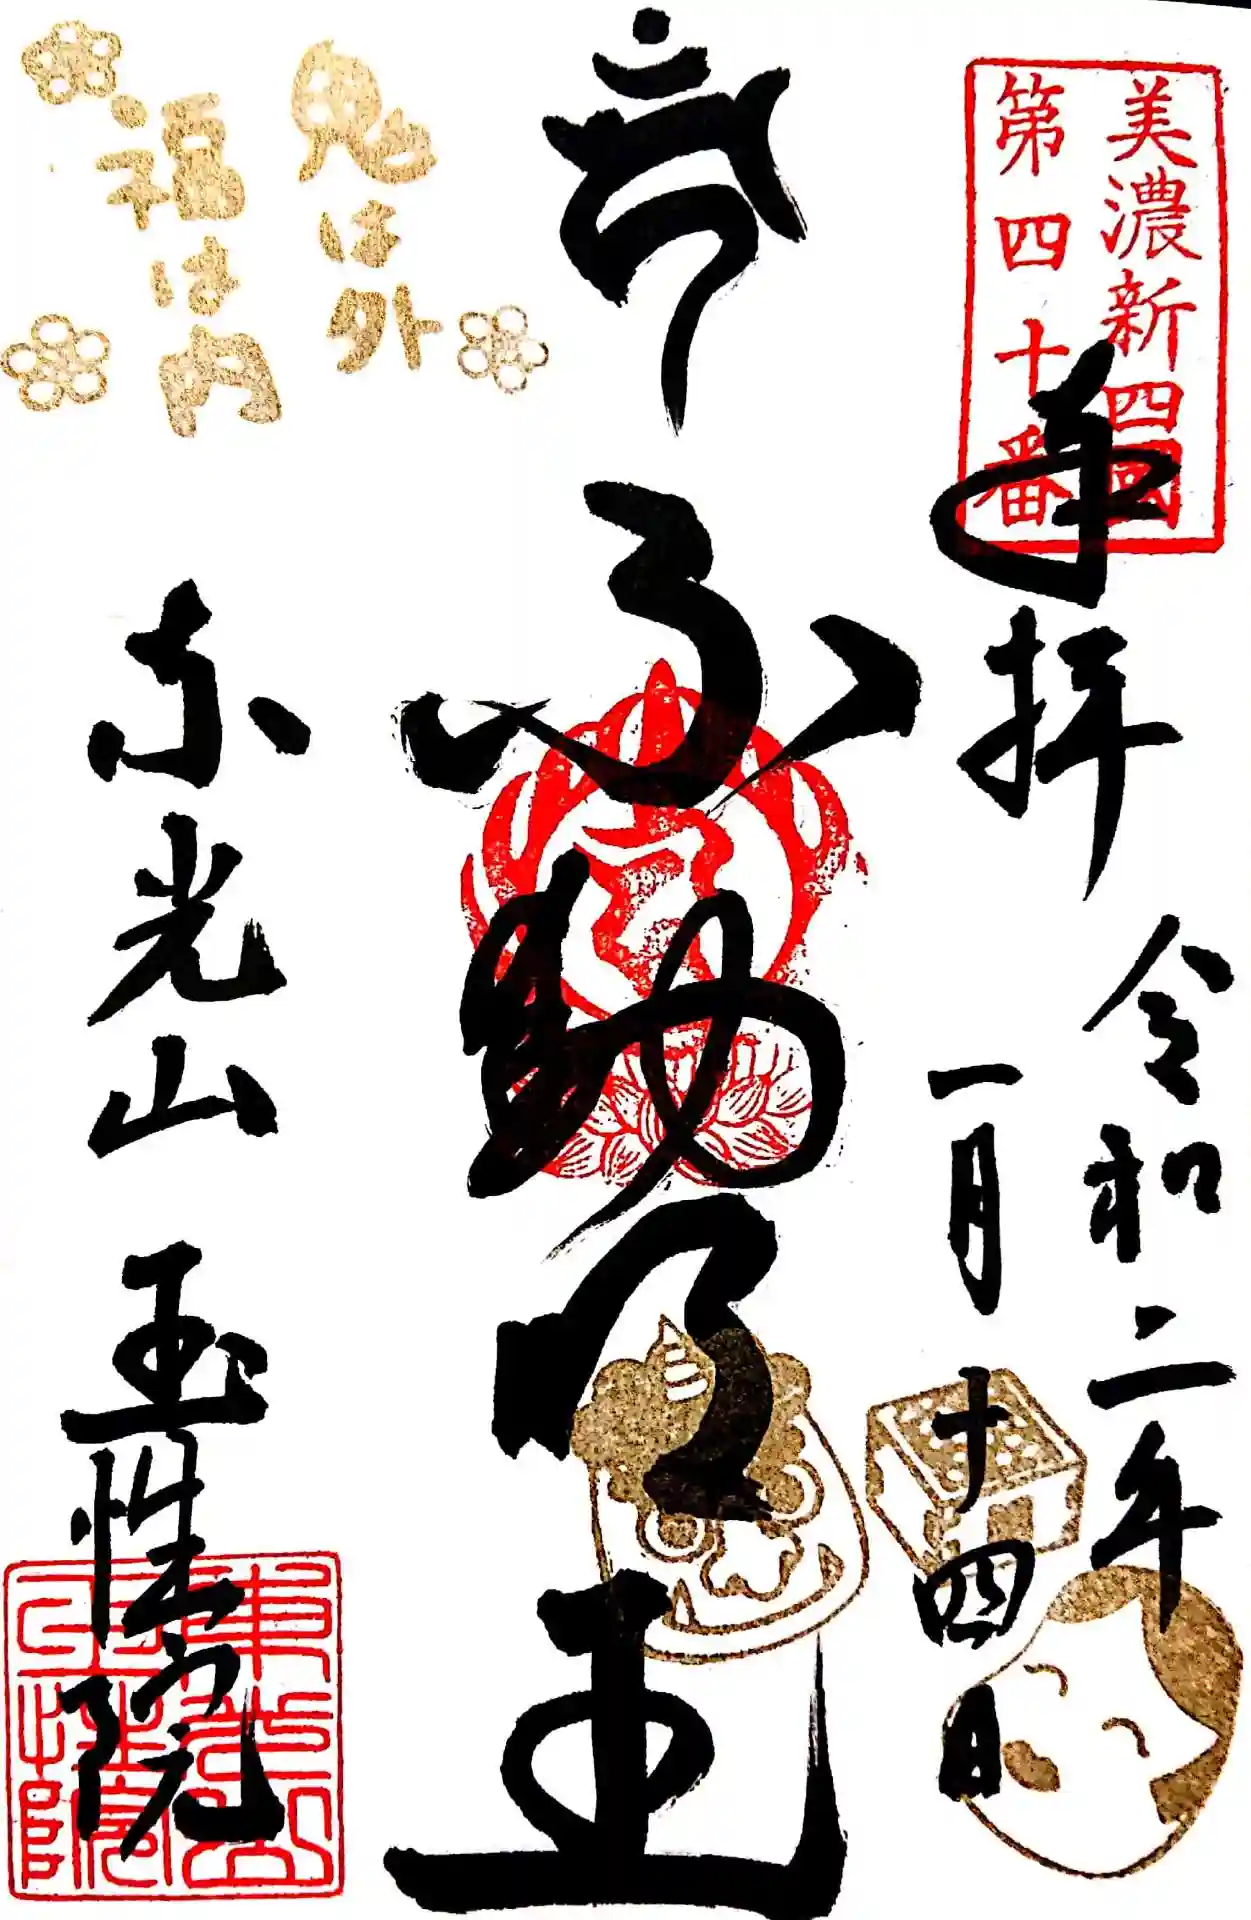 美濃新四國
第四十番
奉拝
令和二年
一月十四日
不動明王
鬼は外
福は内
東光山 玉性院
東光山
玉性院